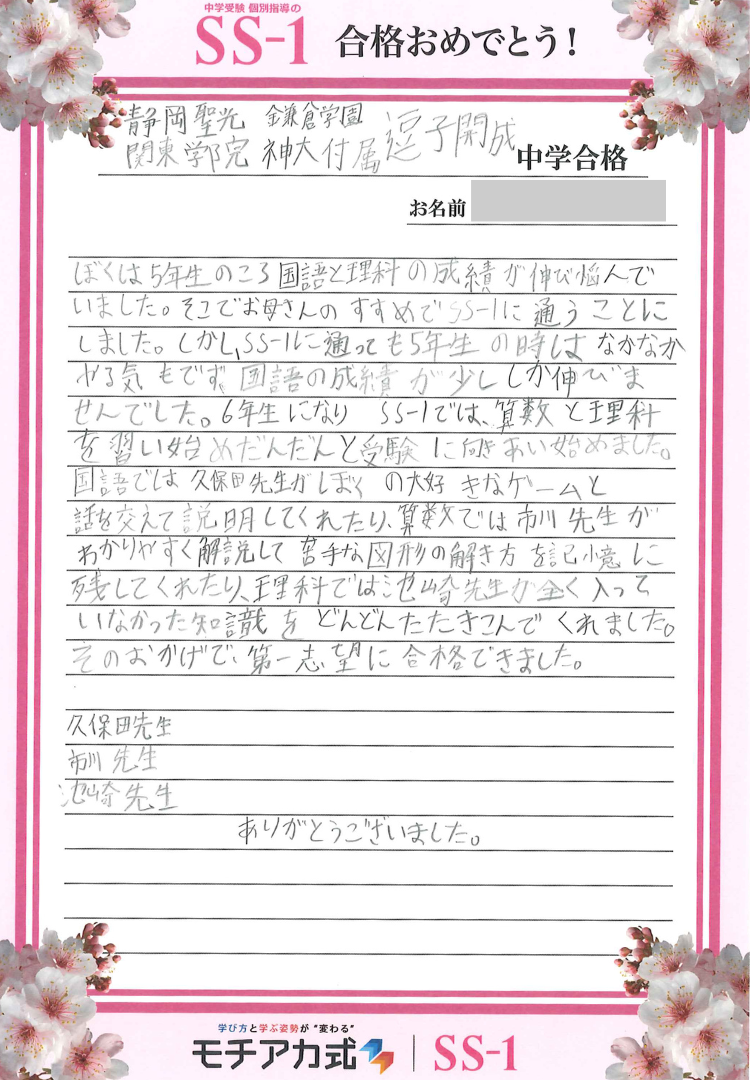 中学受験 個別指導の
SS-1 合格おめでとう!
静岡聖光 鎌倉学園
関東学院 神大付属 逗子開成 中学合格
お名前
ぼくは5年生のころ国語と理科の成績が伸び悩んで
いました。そこでお母さんのすすめでSS-1に通うことに
しました。しかし、SS-1に通っても5年生の時はなかなか
やる気もでず、国語の成績が少ししか伸びま
せんでした。6年生になり SS-1では、算数と理科
を習い始めだんだんと受験に向きあい始めました。
国語では久保田先生がぼくの大好きなゲームと
話を交えて説明してくれたり、算数では市川先生が
わかりやすく解説して苦手な図形の解き方を記憶に
残してくれたり、理科では池崎先生が全く入って
いなかった知識をどんどんたたきこんでくれました。
そのおかげで、第一志望に合格できました。
久保田先生
市川先生
池崎先生
ありがとうございました。
学び方と学ぶ姿勢が“変わる”
モチアカ式 SS-1